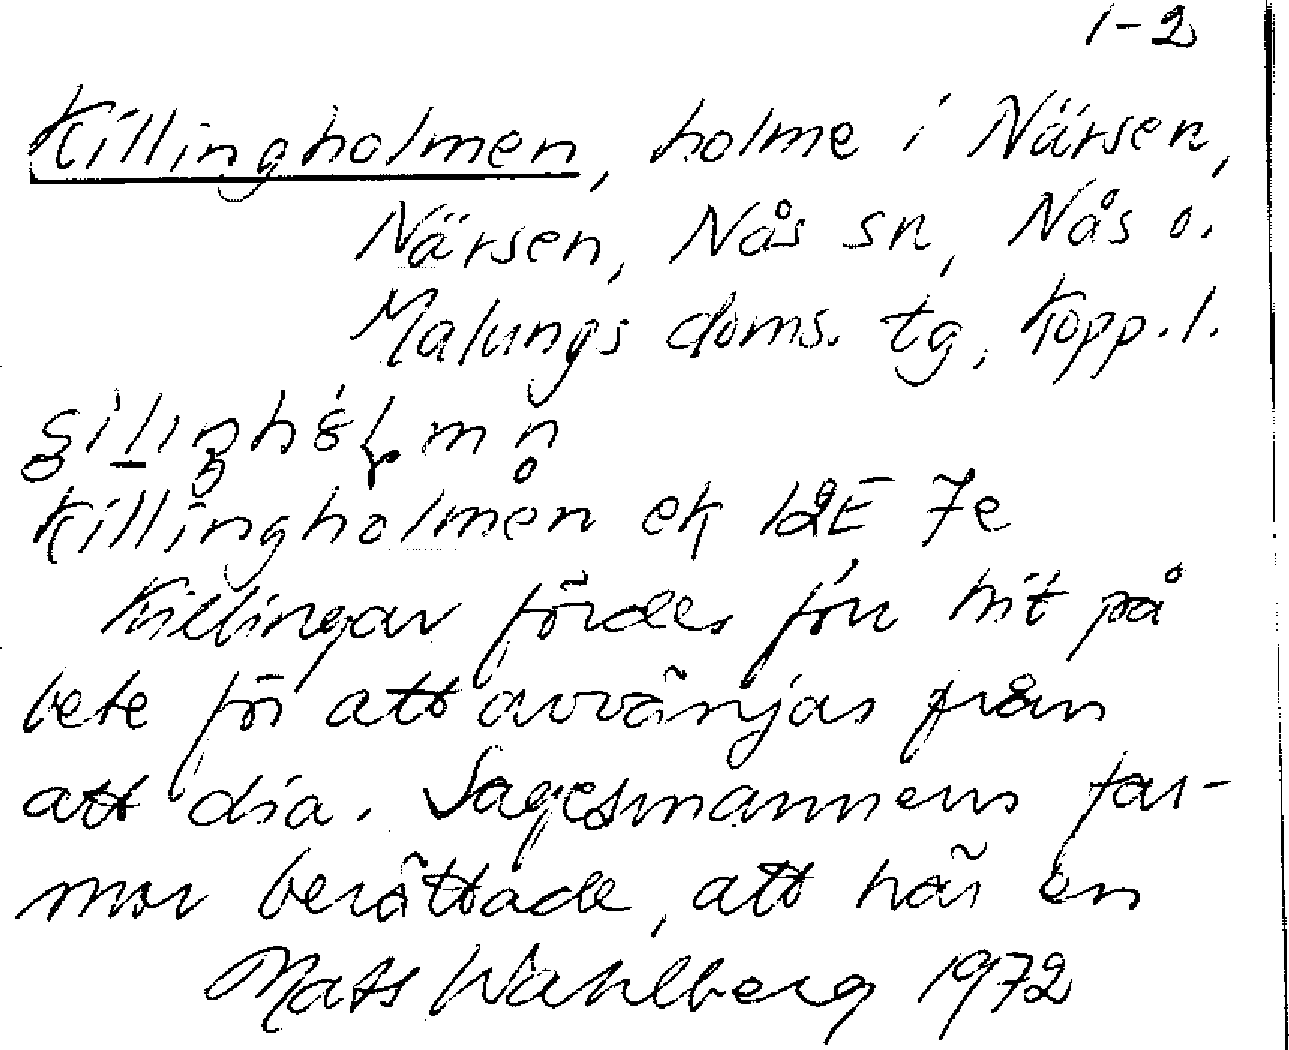 1-2
Killingholmen, holme i Närsen,
Närsen, Nås sn, Nås o.
Malungs doms. tg, Kopp. l.
Killingholmen ek 12E 7e
Killingar fördes förr hit på
bete för att avvänjas från
att dia. Sagesmannens far-
mor berättade, att här en
Mats Wahlberg 1972